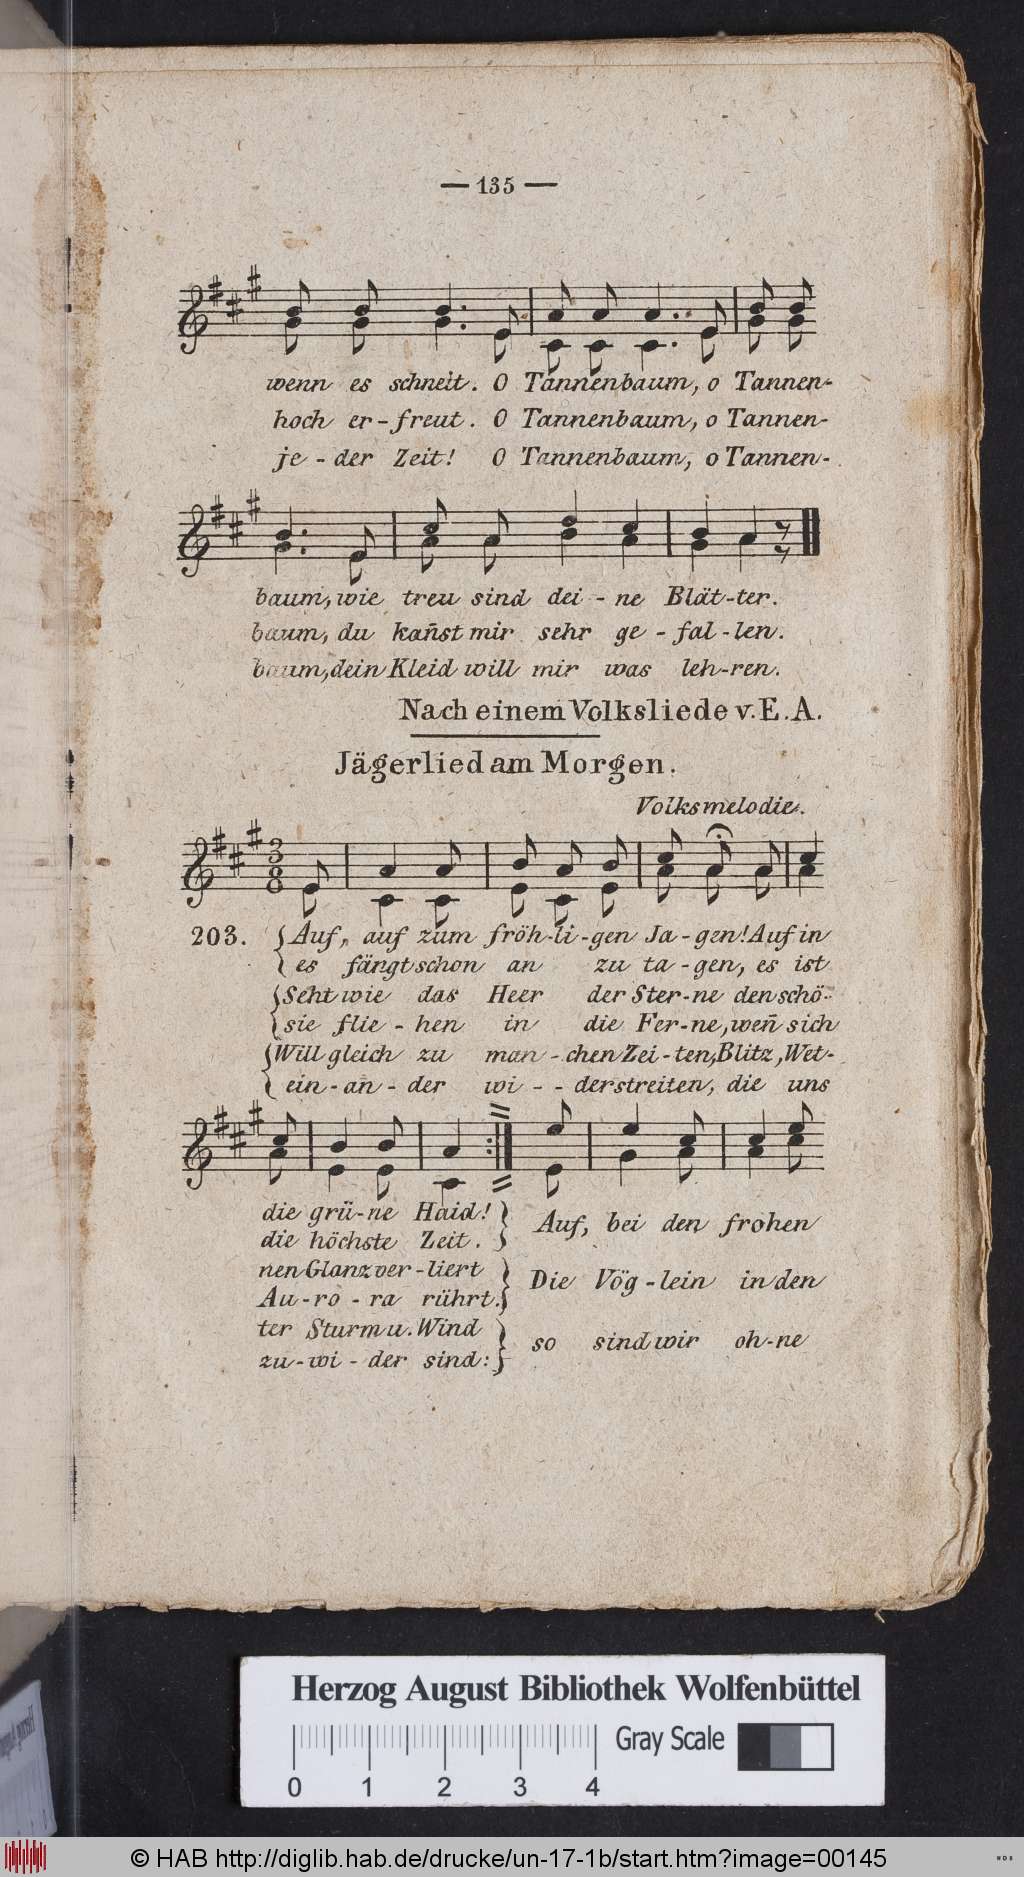 — 135 —
wenn es schneit. O Tannenbaum, o Tannen-
hoch er-freut. O Tannenbaum, o Tannen-
je-der Zeit! O Tannenbaum, o Tannen-
baum, wie treu sind dei-ne Blät-ter.
baum, du kan̄st mir sehr ge-fal-len.
baum, dein Kleid will mir was leh-ren.
Nach einem Volksliede v. E. A.
Jägerlied am Morgen.
Volksmelodie.
3
8
203. Auf, auf zum fröh-li-gen Ja-gen! Auf in
es fängt schon an zu ta-gen, es ist
Seht wie das Heer der Ster-ne den schö-
sie flie-hen in die Fer-ne, wen̄ sich
Will gleich zu man-chen Zei-ten, Blitz, Wet-
ein-an-der wi--derstreiten, die uns
die grü-ne Haid!
die höchste Zeit. } Auf, bei den frohen
nen Glanz ver-liert
Au-ro-ra rührt. } Die Vög-lein in den
ter Sturm u. Wind
zu-wi-der sind: } so sind wir oh-ne
Herzog August Bibliothek Wolfenbüttel
Gray Scale
0 1 2 3 4
© HAB http://diglib.hab.de/drucke/un-17-1b/start.htm?image=00145